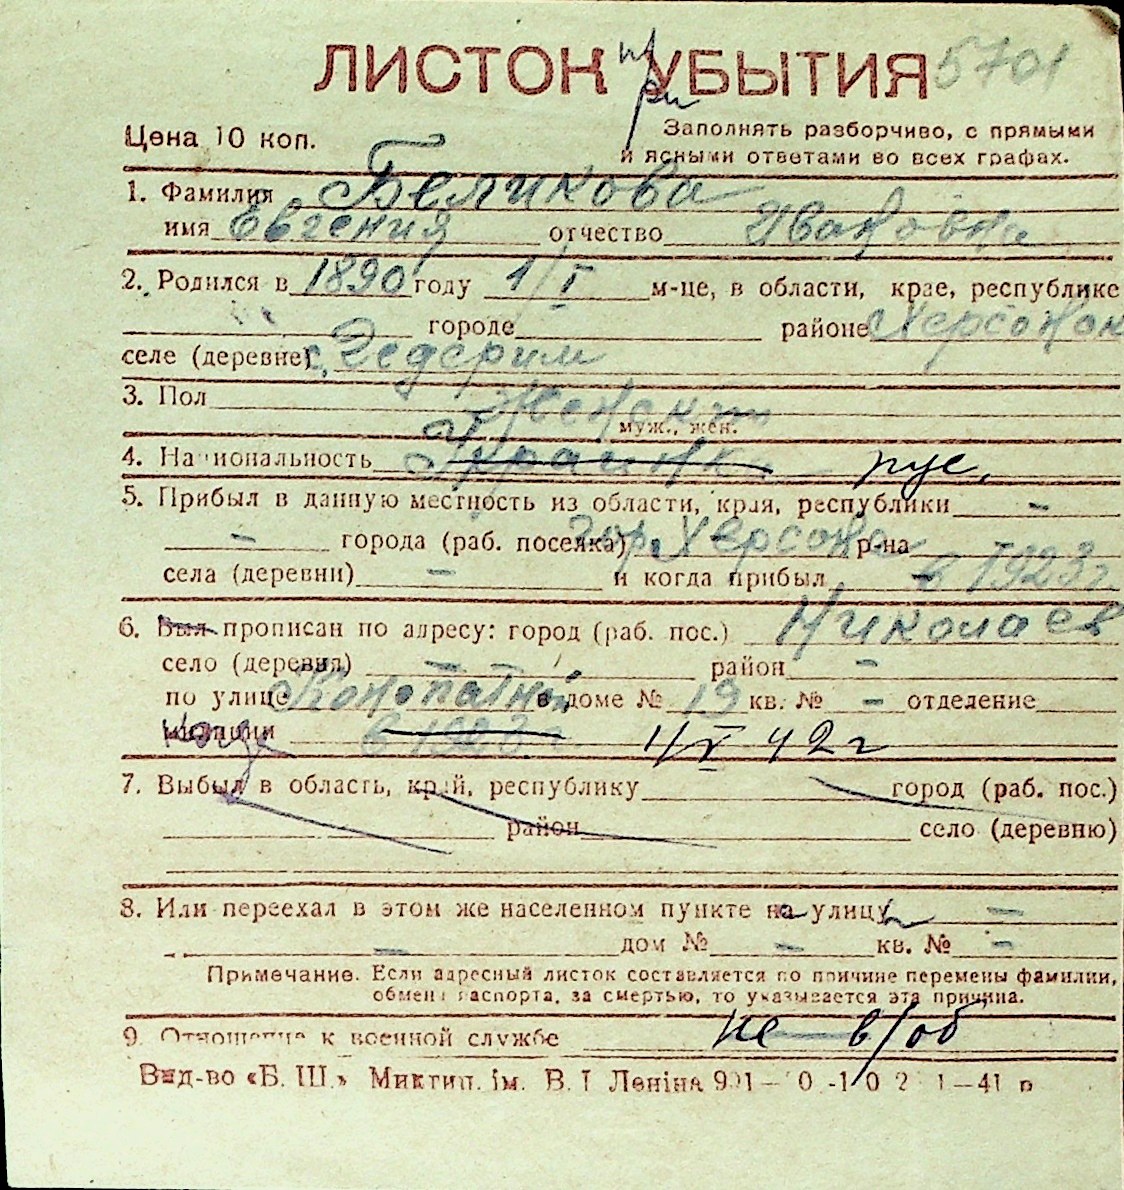 ЛИСТОК УБЫТИЯ 5701
при
Цена 10 коп.
Заполнять разборчиво, с прямыми
и ясными ответами во всех графах.
1. Фамилия Беликова
имя Евгения отчество Ивановна
2. Родился в 1890 году 1/I м-це, в области, крае, республике
городе районе Херсонск
селе (деревне) с.
3. Пол Женск
муж., жен.
4. Национальность Украинка рус.
5. Прибыл в данную местность из области, края, республики -
- города (раб. поселка) гор. Херсона р-на
села (деревни) - и когда прибыл в 1923 г
6. Был прописан по адресу: город (раб. пос.) Николаев
село (деревня) - район -
по улице в доме № 19 кв. № - отделение
милиции Когда в 1923 г. 1/V 42 г
7. Выбыл в область, край, республику город (раб. пос.)
район село (деревню)
8. Или переехал в этом же населенном пункте на улицу -
- дом № - кв. № -
Примечание. Если адресный листок составляется по причине перемены фамилии,
обмена паспорта, за смертью, то указывается эта причина.
9. Отношение к военной службе не в/об
Вид-во «Б. Ш.» Миктип. ім. В. І Леніна